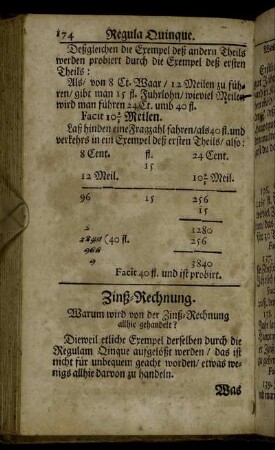 174 Regula Quinque.
Deßgleichen die Exempel deß andern Theils
werden probiert durch die Exempel deß ersten
Theils:
Als/ von 8 Ct. Waar/ 12 Meilen zu füh-
ren/ gibt man 15 fl. Fuhrlohn/ wieviel Meilen
wird man führen 24 Ct. umb 40 fl.
Facit 10⅔ Meilen.
Laß hinden eine Fragzahl fahren/ als 40 fl. und
verkehrs in ein Exempel deß ersten Theils/ also:
8 Cent. fl. 24 Cent.
15
12 Meil. 10⅔ Meil.
96 15 256
15
2 1280
(40 fl. 256
9 3840
Facit 40 fl. und ist probirt.
Zinß-Rechnung.
Warum wird von der Zinß-Rechnung
allhie gehandelt?
Dieweil etliche Exempel derselben durch die
Regulam Qinque aufgelößt werden/ das ist
nicht für unbequem geacht worden/ etwas we-
nigs allhie darvon zu handeln.
Was